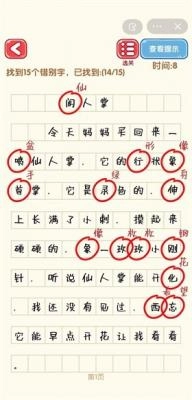 选关
查看提示
找到15个错别字，已找到:(14/15)
时间:8
仙
闲人掌
今天妈妈买回来一
盆 形 像
喷仙人掌，它的行状象
手 绿 身
首掌，它是录色的，伸
上长满了小刺，摸起来
像 枚 枚 钢
硬硬的，象一玫玫小刚
花
针，听说仙人掌能开化
希 望
，我还没有见过，西忘
它能早点开花让我看看
第1页